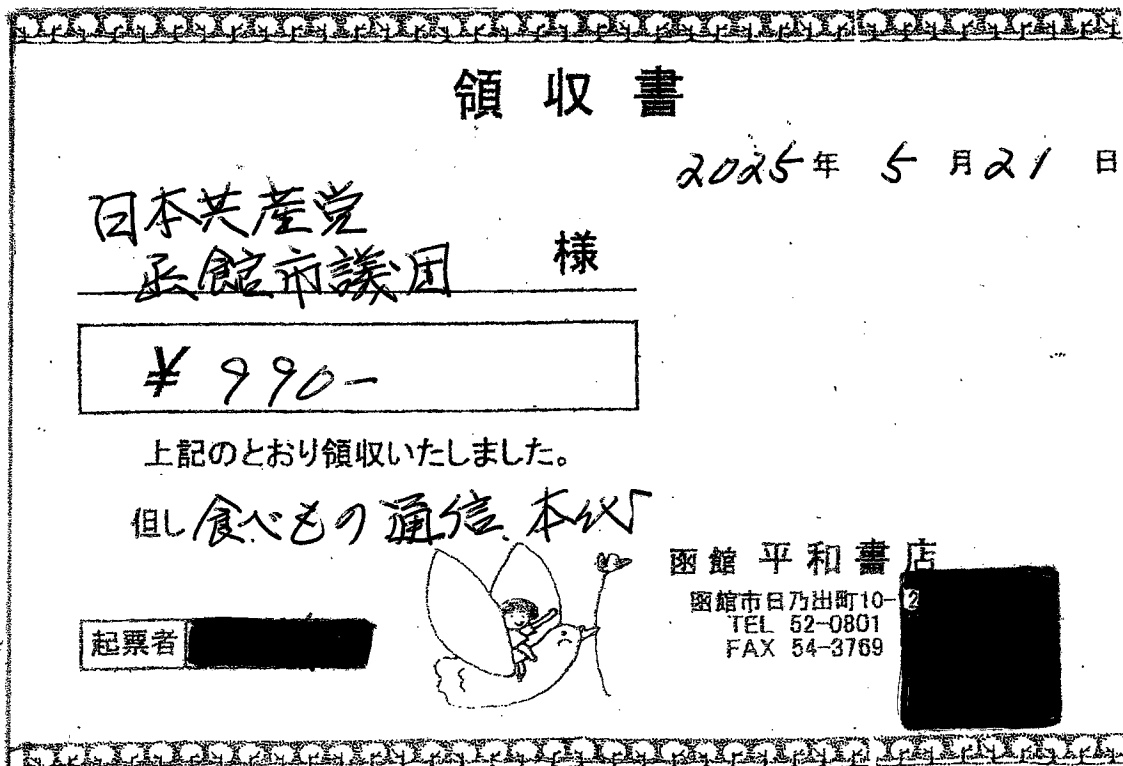 領収書
2025年 5月21日
日本共産党
函館市議団 様
¥990-
上記のとおり領収いたしました。
但し 食べもの通信、本代
函館 平和書店
函館市日乃出町10-12
TEL 52-0801
FAX 54-3769
起票者